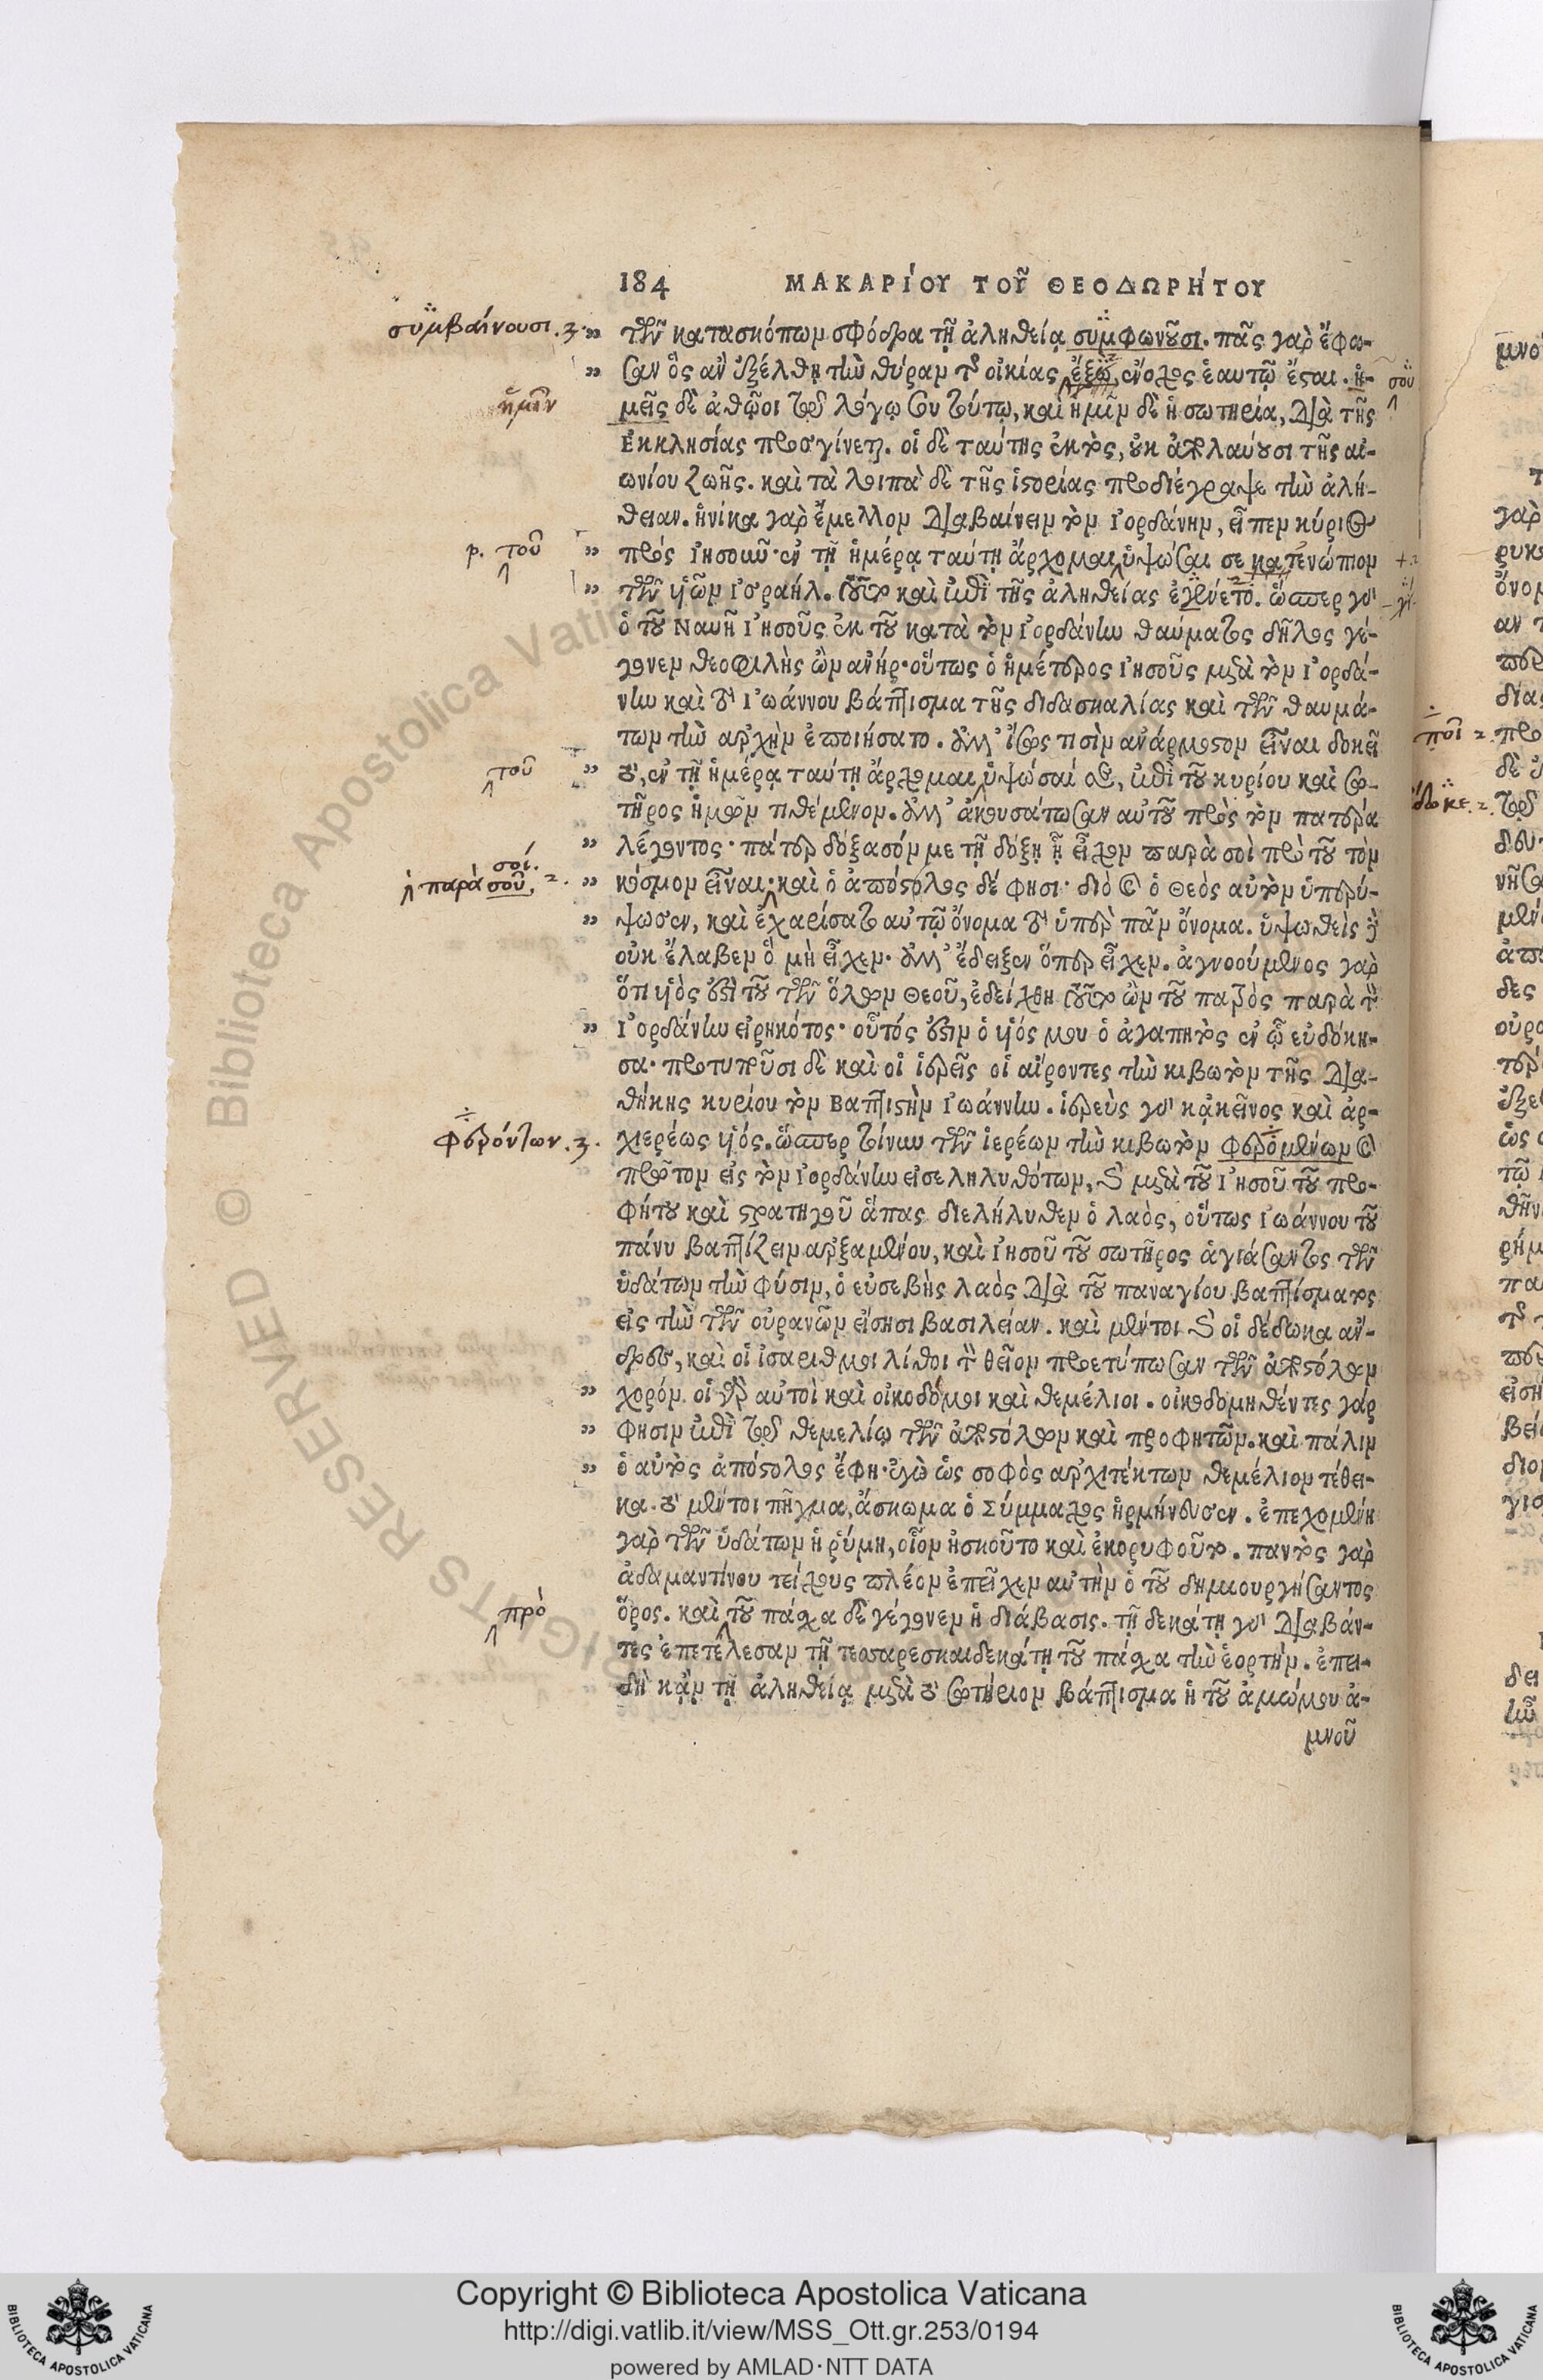 184 ΜΑΚΑΡίΟΥ ΤΟΥ͂ ΘΕΟΔΩΡΉΤΟΥ
συμβαίνουσι. 3. " τῶν κατασκόπωμ σφόδρα τῇ ἀληθείᾳ συμφωνοῦσι. πᾶς γὰρ ἔφω-
" σαν ὃς ἂν ἐξέλθῃ τὴν θύραμ τῆς οἰκίας ἔξω, ἔνοχος ἑαυτῷ ἔσται. ἡ- σοῦ
ἡμῖν μεῖς δὲ ἀθῷοι τῷ λόγῳ σου τούτῳ, καὶ ἡμῖμ δὲ ἡ σωτηρία, διὰ τῆς
ἐκκλησίας προσγίνεται. οἱ δὲ ταύτης ἐκτὸς, οὐκ ἀπολαύουσι τῆς αἰ-
ωνίου ζωῆς. καὶ τὰ λοιπὰ δὲ τῆς ἱστορίας προδιέγραψε τὴν ἀλή-
θειαν. ἡνίκα γὰρ ἔμελλομ διαβαίνειμ τὸμ ἰορδάνημ, εἶπεμ κύριος
ρ. τοῦ " πρὸς ἰησοιῶ· ἐν τῇ ἡμέρᾳ ταύτῃ ἄρχομαι ὑψῶσαι σε κατενώπιομ
" τῶν υἱῶμ ἰσραήλ. τοῦτο καὶ ἐπὶ τῆς ἀληθείας ἐγένετο. ὥσπερ γὰρ
ὁ τοῦ Ναυῆ ἰησοῦς ἐκ τοῦ κατὰ τὸμ ἰορδάνην θαύματος δῆλος γέ-
γονεμ θεοφιλὴς ὢμ ἀνήρ· οὕτως ὁ ἡμέτερος ἰησοῦς μετὰ τὸμ ἰορδά-
νην καὶ τὸ ἰωάννου βάπτισμα τῆς διδασκαλίας καὶ τῶν θαυμά-
τωμ τὴν ἀρχὴμ ἐποιήσατο. ἀλλ' ἴσως τισὶμ ἀνάρμοστομ εἶναι δοκεῖ
τοῦ " τὸ, ἐν τῇ ἡμέρᾳ ταύτῃ ἄρχομαι ὑψῶσαί σε, ἐπὶ τοῦ κυρίου καὶ σω-
τῆρος ἡμῶμ τιθέμενομ. ἀλλ' ἀκουσάτωσαν αὐτοῦ πρὸς τὸμ πατέρα
" λέγοντος· πάτερ δόξασόμ με τῇ δόξῃ ᾗ εἶχομ παρὰ σοὶ πρὸ τοῦ τὸμ
σοί.
παρὰ σοῦ, 2. " κόσμομ εἶναι· καὶ ὁ ἀπόστολος δέ φησι· διὸ καὶ ὁ Θεὸς αὐτὸμ ὑπερύ-
" ψωσεν, καὶ ἐχαρίσατο αὐτῷ ὄνομα τὸ ὑπὲρ πᾶμ ὄνομα. ὑψωθεὶς δὲ
οὐκ ἔλαβεμ ὃ μὴ εἶχεμ· ἀλλ' ἔδειξεν ὅπερ εἶχεμ. ἀγνοούμενος γὰρ
ὅτι υἱὸς ἐστὶ τοῦ τῶν ὅλωμ Θεοῦ, ἐδείχθη τοῦτο ὢμ τοῦ πατρὸς παρὰ τὸν
" ἰορδάνην εἰρηκότος· οὗτός ἐστιμ ὁ υἱός μου ὁ ἀγαπητὸς ἐν ᾧ εὐδόκη-
σα· προτυποῦσι δὲ καὶ οἱ ἱερεῖς οἱ αἴροντες τὴν κιβωτὸμ τῆς δια-
θήκης κυρίου τὸμ Βαπτιστὴμ ἰωάννην. ἱερεὺς γὰρ κἀκεῖνος καὶ ἀρ-
φερόντων. 3. χιερέως υἱός. ὥσπερ τοίνυν τῶν ἱερέωμ τὴν κιβωτὸμ φερομένωμ καὶ
πρῶτομ εἰς τὸμ ἰορδάνην εἰσεληλυθότωμ, καὶ μετὰ τοῦ ἰησοῦ τοῦ προ-
φήτου καὶ στρατηγοῦ ἅπας διελήλυθεμ ὁ λαὸς, οὕτως ἰωάννου τοῦ
πάνυ βαπτίζειμ ἀρξαμένου, καὶ ἰησοῦ τοῦ σωτῆρος ἁγιάσαντος τῶν
ὑδάτωμ τὴν φύσιμ, ὁ εὐσεβὴς λαὸς διὰ τοῦ παναγίου βαπτίσματος
εἰς τὴν τῶν οὐρανῶμ εἴσησι βασιλείαν. καὶ μέντοι καὶ οἱ δέδωκα ἄν-
δρες, καὶ οἱ ἰσαριθμοι λίθοι τὸν θεῖομ προετύπωσαν τῶν ἀποστόλωμ
" χορόμ. οἱ γὰρ αὐτοὶ καὶ οἰκοδόμοι καὶ θεμέλιοι. οἰκοδομηθέντες γάρ
" φησιμ ἐπὶ τῷ θεμελίῳ τῶν ἀποστόλωμ καὶ προφητῶμ. καὶ πάλιμ
" ὁ αὐτὸς ἀπόστολος ἔφη· ἐγὼ ὡς σοφὸς ἀρχιτέκτωμ θεμέλιομ τέθει-
κα. τὸ μέντοι πῆγμα, ἄσκωμα ὁ Σύμμαχος ἡρμήνευσεν. ἐπεχομένη
γὰρ τῶν ὑδάτωμ ἡ ῥύμη, οἷομ ἠσκοῦτο καὶ ἐκορυφοῦτο. παντὸς γὰρ
ἀδαμαντίνου τείχους πλέομ ἐπεῖχεμ αὐτὴμ ὁ τοῦ δημιουργήσαντος
πρὸ ὅρος. καὶ τοῦ πάσχα δὲ γέγονεμ ἡ διάβασις. τῇ δεκάτῃ γὰρ διαβάν-
τες ἐπετέλεσαμ τῇ τεσσαρεσκαιδεκάτῃ τοῦ πάσχα τὴν ἑορτήμ. ἐπει-
δὴ κᾀμ τῇ ἀληθείᾳ μετὰ τὸ σωτήριομ βάπτισμα ἡ τοῦ ἀμώμου ἀ-
μνοῦ
Copyright © Biblioteca Apostolica Vaticana
http://digi.vatlib.it/view/MSS_Ott.gr.253/0194
powered by AMLAD·NTT DATA